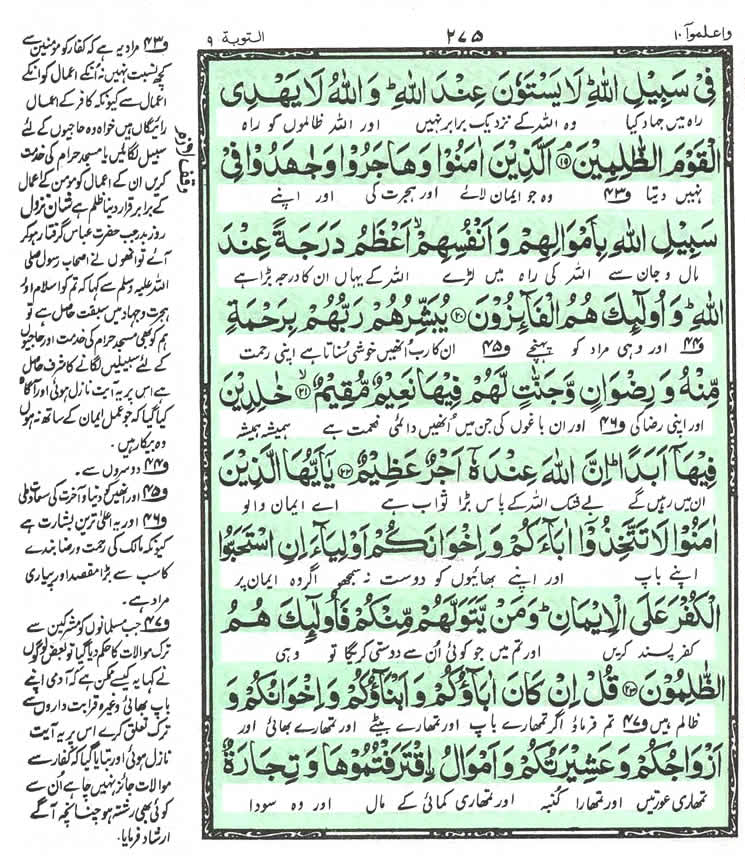 واعلموا ١٠
٢٧٥
التوبة ٩
فِیۡ سَبِیۡلِ اللّٰہِ ؕ لَا یَسۡتَوٗنَ عِنۡدَ اللّٰہِ ؕ وَ اللّٰہُ لَا یَہۡدِی
راہ میں جہاد کیا وہ اللہ کے نزدیک برابر نہیں اور اللہ ظالموں کو راہ
الۡقَوۡمَ الظّٰلِمِیۡنَ ﴿۱۹﴾ اَلَّذِیۡنَ اٰمَنُوۡا وَ ہَاجَرُوۡا وَ جٰہَدُوۡا فِیۡ
نہیں دیتا و۴۳ وہ جو ایمان لائے اور ہجرت کی اور اپنے
سَبِیۡلِ اللّٰہِ بِاَمۡوَالِہِمۡ وَ اَنۡفُسِہِمۡ ۙ اَعۡظَمُ دَرَجَۃً عِنۡدَ
مال و جان سے اللہ کی راہ میں لڑے اللہ کے یہاں ان کا درجہ بڑا ہے
اللّٰہِ ؕ وَ اُولٰٓئِکَ ہُمُ الۡفَآئِزُوۡنَ ﴿۲۰﴾ یُبَشِّرُہُمۡ رَبُّہُمۡ بِرَحۡمَۃٍ
و۴۴ اور وہی مراد کو پہنچے و۴۵ ان کا رب اُنھیں خوشی سُناتا ہے اپنی رحمت
مِّنۡہُ وَ رِضۡوَانٍ وَّ جَنّٰتٍ لَّہُمۡ فِیۡہَا نَعِیۡمٌ مُّقِیۡمٌ ﴿ۙ۲۱﴾ خٰلِدِیۡنَ
اور اپنی رضا کی و۴۶ اور ان باغوں کی جن میں اُنھیں دائمی نعمت ہے ہمیشہ ہمیشہ
فِیۡہَاۤ اَبَدًا ؕ اِنَّ اللّٰہَ عِنۡدَہٗۤ اَجۡرٌ عَظِیۡمٌ ﴿۲۲﴾ یٰۤاَیُّہَا الَّذِیۡنَ
ان میں رہیں گے بے شک اللہ کے پاس بڑا ثواب ہے اے ایمان والو
اٰمَنُوۡا لَا تَتَّخِذُوۡۤا اٰبَآءَکُمۡ وَ اِخۡوَانَکُمۡ اَوۡلِیَآءَ اِنِ اسۡتَحَبُّوا
اپنے باپ اور اپنے بھائیوں کو دوست نہ سمجھو اگر وہ ایمان پر
الۡکُفۡرَ عَلَی الۡاِیۡمَانِ ؕ وَ مَنۡ یَّتَوَلَّہُمۡ مِّنۡکُمۡ فَاُولٰٓئِکَ ہُمُ
کفر پسند کریں اور تم میں جو کوئی اُن سے دوستی کریگا تو وہی
الظّٰلِمُوۡنَ ﴿۲۳﴾ قُلۡ اِنۡ کَانَ اٰبَآؤُکُمۡ وَ اَبۡنَآؤُکُمۡ وَ اِخۡوَانُکُمۡ وَ
ظالم ہیں و۴۷ تم فرماؤ اگر تمھارے باپ اور تمھارے بیٹے اور تمھارے بھائی اور
اَزۡوَاجُکُمۡ وَ عَشِیۡرَتُکُمۡ وَ اَمۡوَالُۨ اقۡتَرَفۡتُمُوۡہَا وَ تِجَارَۃٌ
تمھاری عورتیں اور تمھارا کُنبہ اور تمھاری کمائی کے مال اور وہ سودا
و۴۳ مراد یہ ہے کہ کفار کو مؤمنین سے
کچھ نسبت نہیں نہ اُنکے اعمال کو انکے
اعمال سے کیونکہ کافر کے اعمال
رائیگاں ہیں خواہ وہ حاجیوں کے لئے
سبیل لگائیں یا مسجد حرام کی خدمت
کریں ان کے اعمال کو مؤمن کے اعمال
کے برابر قرار دینا ظلم ہے شان نزول
روز بدر جب حضرت عباس گرفتار ہوکر
آئے تو انھوں نے اصحاب رسول صلی
اللہ علیہ وسلم سے کہا کہ تم کو اسلام اور
ہجرت و جہاد میں سبقت حاصل ہے تو
ہم کو بھی مسجد حرام کی خدمت اور حاجیوں
کے لئے سبیلیں لگانے کا شرف حاصل
ہے اس پر یہ آیت نازل ہوئی اور آگاہ
کیا گیا کہ جو عمل ایمان کے ساتھ نہ ہوں
وہ بیکار ہیں۔
و۴۴ دوسروں سے۔
و۴۵ اور انھیں کو دنیا و آخرت کی سعادت ملی
و۴۶ اور یہ اعلیٰ ترین بشارت ہے
کیونکہ مالک کی رحمت و رضا بندے
کا سب سے بڑا مقصد اور پیاری
مراد ہے۔
و۴۷ جب مسلمانوں کو مشرکین سے
ترک موالات کا حکم دیا گیا تو بعض لوگوں
نے کہا یہ کیسے ممکن ہے کہ آدمی اپنے
باپ بھائی وغیرہ قرابت داروں سے
ترک تعلق کرے اس پر یہ آیت
نازل ہوئی اور بتایا گیا کہ کفار سے
موالات جائز نہیں چاہے اُن سے
کوئی بھی رشتہ ہو چنانچہ آگے
ارشاد فرمایا۔